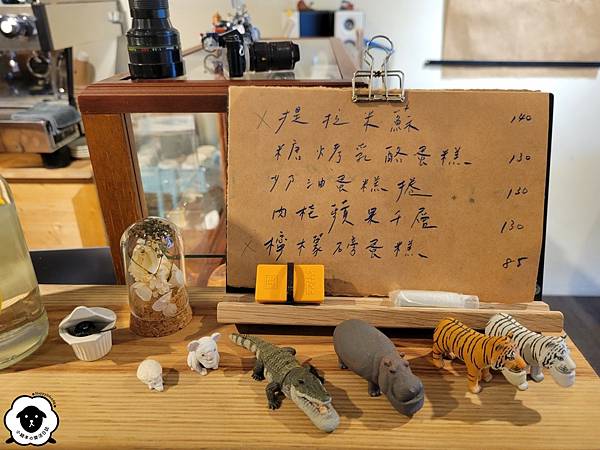 ×提拉米蘇 140
糖烤乳酪蛋糕 130
奶油蛋糕捲 130
肉桂蘋果千層 130
×檸檬磅蛋糕 85